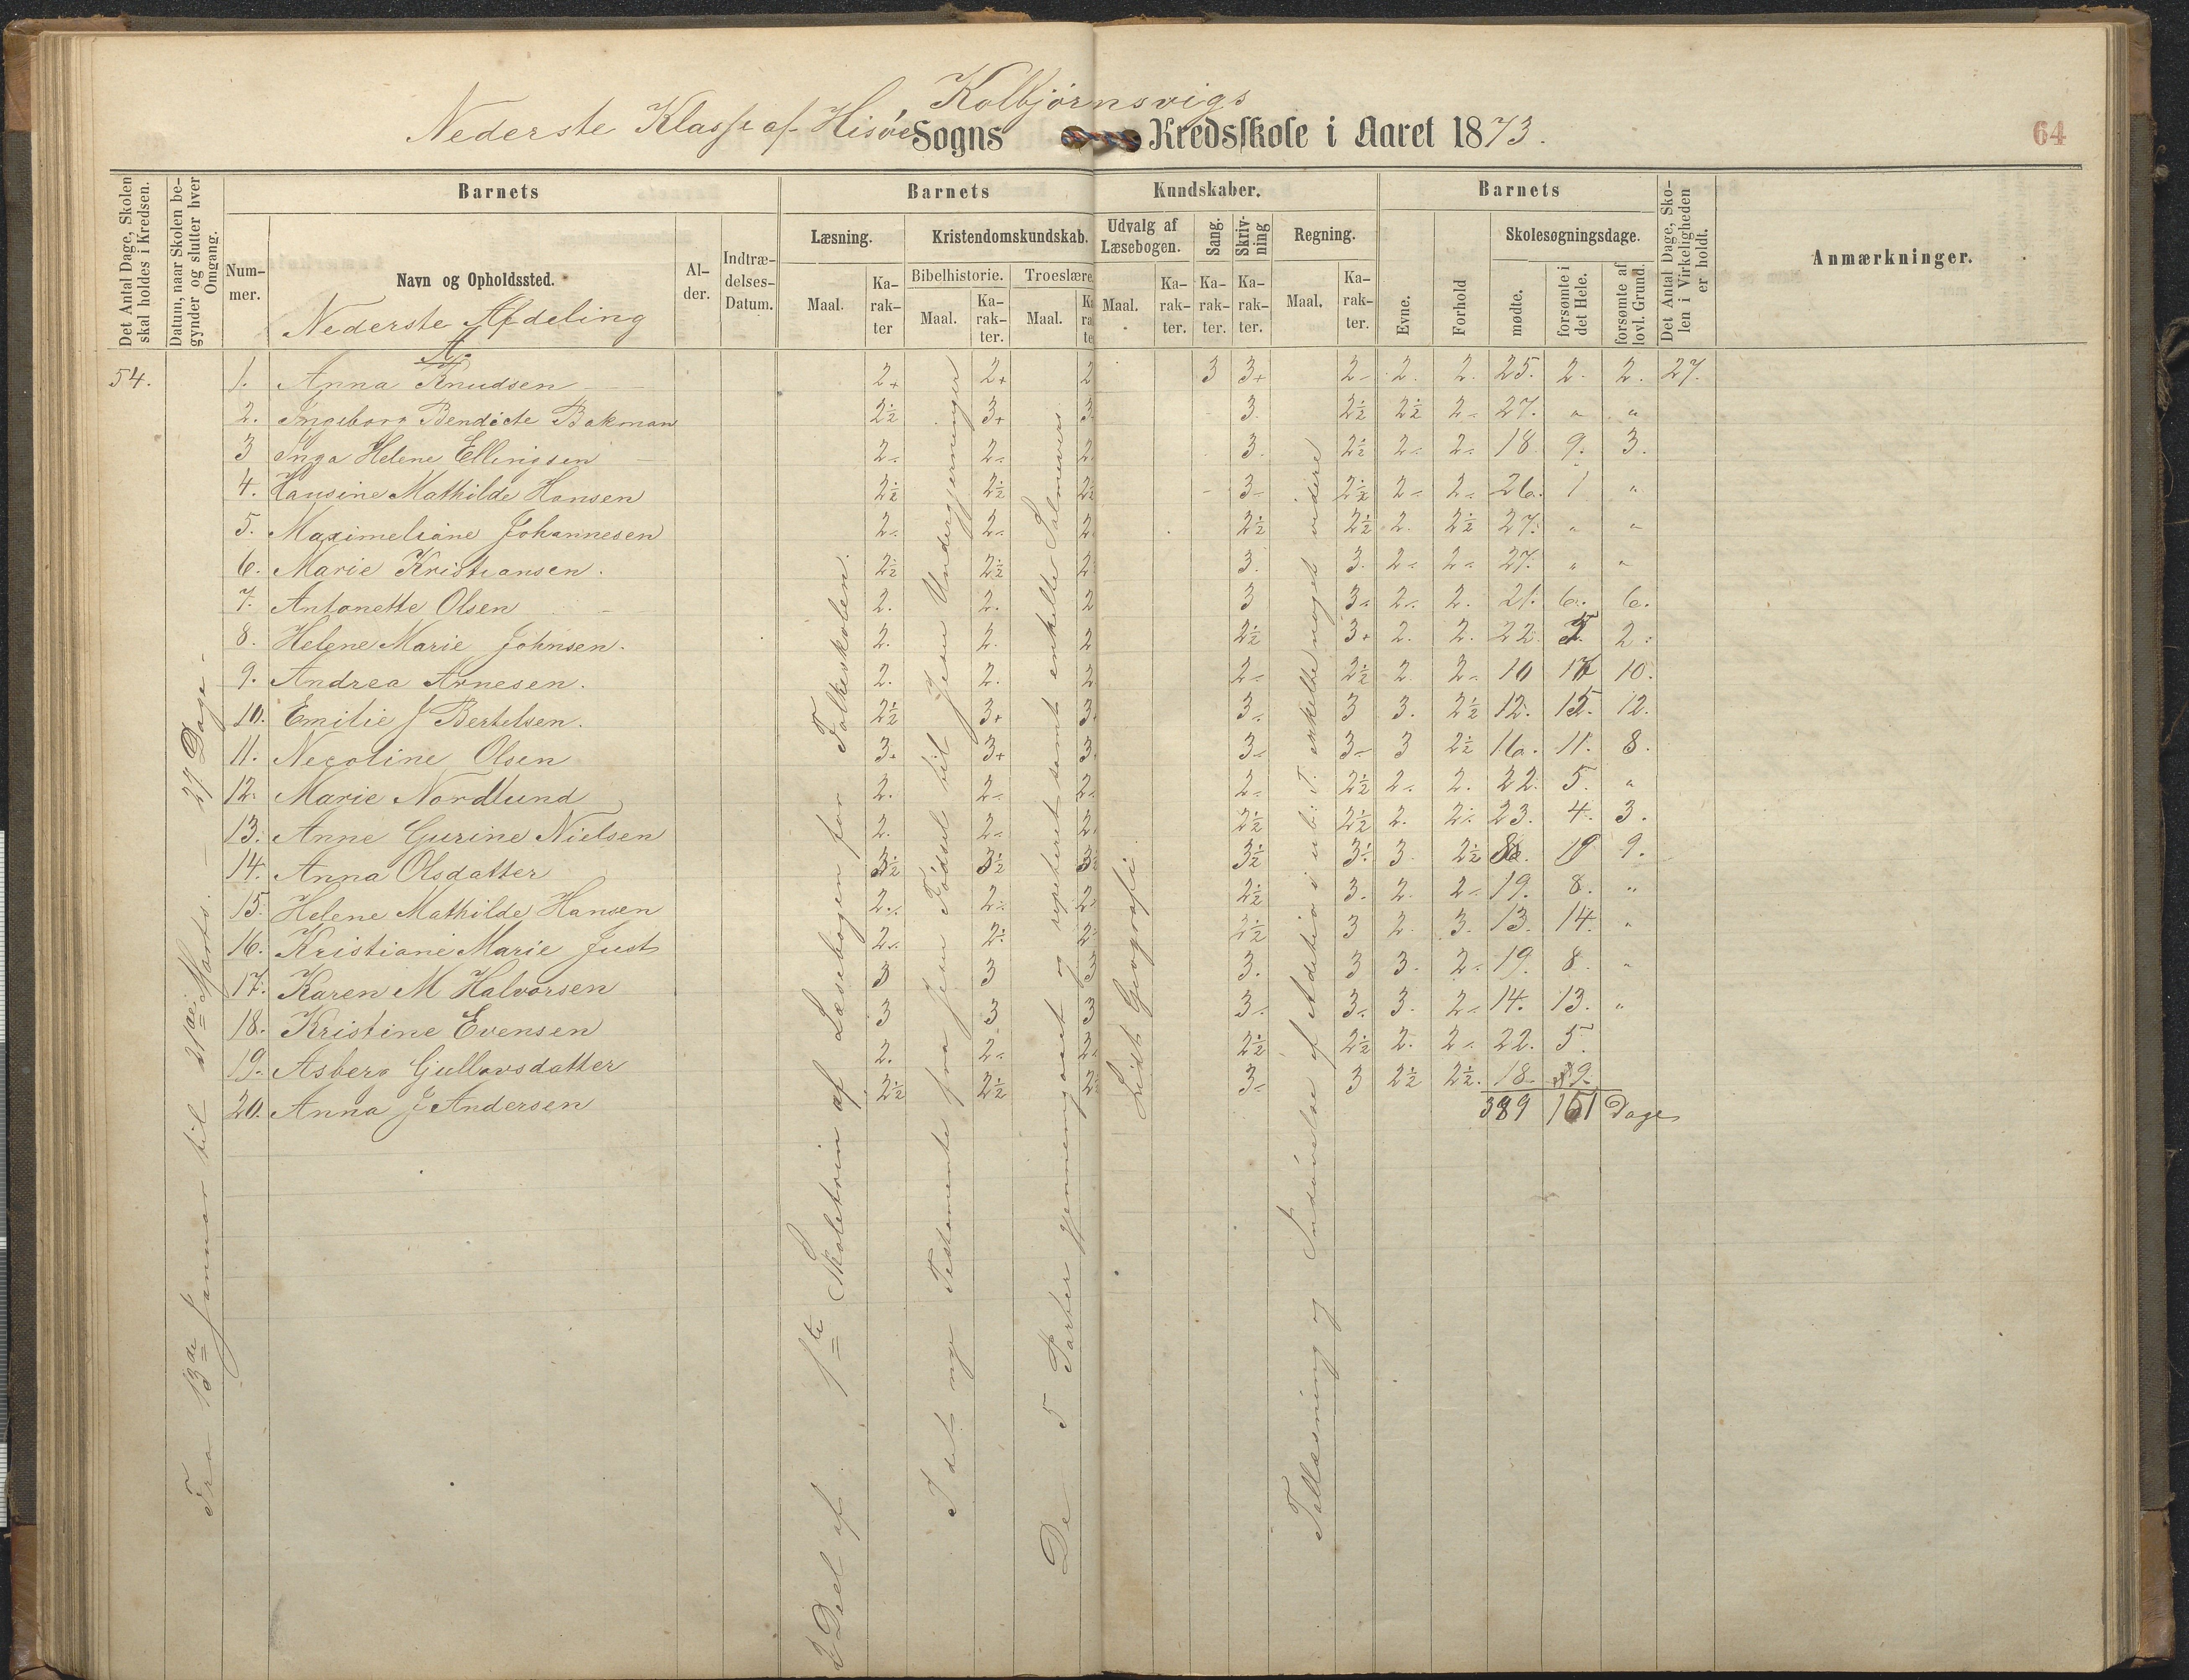 Kolbjørnsvigs
Nederste Klasse af Hisøe Sogns Kredsskole i Aaret 1873.
64
Det Antal Dage, Skolen skal holdes i Kredsen.
Datum, naar Skolen begynder og slutter hver Omgang.
Barnets
Barnets
Kundskaber.
Barnets
Det Antal Dage, Skolen i Virkeligheden er holdt.
Anmærkninger.
Nummer.
Navn og Opholdssted.
Alder.
Indtrædelses-Datum.
Læsning.
Kristendomskundskab.
Udvalg af Læsebogen.
Sang.
Skrivning
Regning.
Evne.
Forhold
Skolesøgningsdage.
Bibelhistorie.
Troeslære
Maal.
Karakter
Maal.
Karakter.
Maal.
Maal.
Karakter.
Karakter.
Karakter.
Maal.
Karakter.
mødte.
forsømte i det Hele.
forsømte af lovl. Grund.
Nederste Afdeling
A.
54. 1. Anna Knudsen 2+ 2+ 2 3 3+ 2- 2. 2. 25. 2. 2. 27.
2. Ingeborg Bendicte Bakman 2½ 3+ 3. 3. 2½ 2½ 2- 27. " "
3 Inga Helene Ellingsen 2- 2- 2 3. 2½ 2- 2- 18 9. 3.
4. Hansine Mathilde Hansen 2½ 2½ 2½ 3- 2½ 2- 2- 26. 1 "
5. Maximeliane Johannesen 2- 2- 2 2½ 2½ 2. 2½ 27. " "
6. Marie Kristiansen. 2½ 2½ 2 3. 3. 2- 2- 27. " "
7. Antonette Olsen 2. 2. 2 3 3- 2- 2. 21. 6. 6.
8. Helene Marie Johnsen. 2. 2. 2 2½ 3+ 2. 2. 22. 5. 2.
9. Andrea Arnesen. 2. 2. 2 2- 2½ 2. 2- 10 17 10.
10. Emilie J Bertelsen. 2½ 3+ 3+ 3- 3 3. 2½ 12. 15. 12.
11. Necoline Olsen 3+ 3+ 3. 3- 3- 3 2½ 16. 11. 8.
12. Marie Nordlund 2. 2- 2- 2- 2½ 2- 2. 22. 5. "
13. Anne Gurine Nielsen 2. 2- 2. 2½ 2½ 2. 2- 23. 4. 3.
14. Anna Olsdatter 3½ 3½ 3½ 3½ 3- 3. 2½ 8. 19 9.
15. Helene Mathilde Hansen 2- 2- 2- 2½ 3. 2. 2- 19. 8. "
16. Kristiane Marie Just 2- 2- 2- 2½ 3 2. 3. 13. 14. "
17. Karen M Halvorsen 3 3 3 3. 3 3. 2- 19. 8. "
18. Kristine Evensen 3 3 3 3- 3- 3. 2- 14. 13. "
19. Asberg Gullovsdatter 2. 2- 2- 2½ 2½ 2. 2- 22. 5.
20. Anna J Andersen 2½ 2½ 2½ 3- 3 2½ 2½. 18. 9.
389 151 Dage
Fra 13de Januar til 21de Marts. — 27 Dage -
2 Deel af 1ste Skoletrin af Læsebogen for Folkeskolen.
I det nye Testamente fra Jesu Fødsel til Jesu Undergjerninger
De 5 Parter gjennemgaaet og repeteret samt enkelte Salmevers
Lidt Geografi.
Tallæsning og Indøvelse af Adetion i ub: T. enkelte noget videre